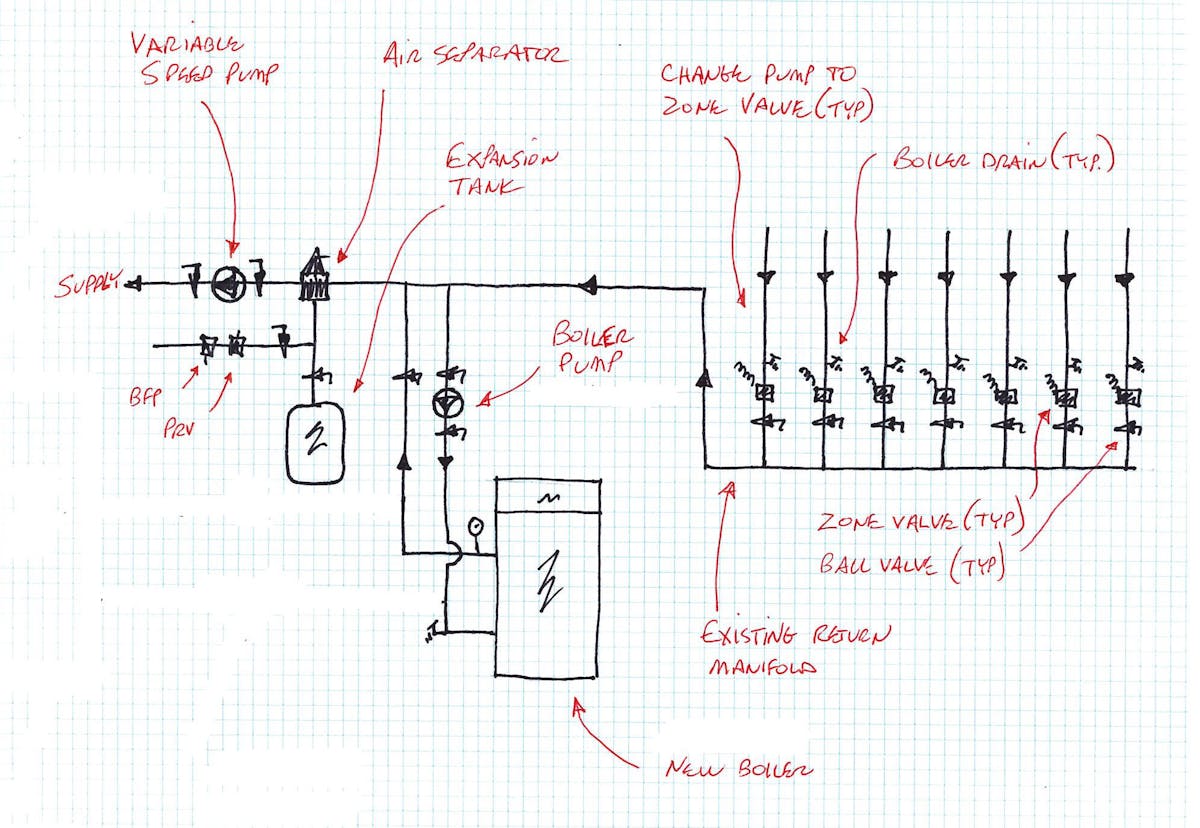 VARIABLE
SPEED PUMP
AIR SEPARATOR
EXPANSION
TANK
CHANGE PUMP TO
ZONE VALVE (TYP)
BOILER DRAIN (TYP.)
SUPPLY
BOILER
PUMP
BFP
PRV
ZONE VALVE (TYP)
BALL VALVE (TYP)
EXISTING RETURN
MANIFOLD
NEW BOILER